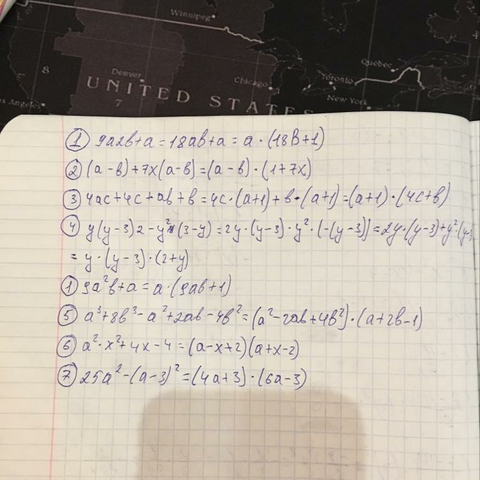 Winnipeg
8
Denver
7
UNITED STATES
Chicago
Quebec
Toronto
New York
① 9a2b+a=18ab+a=a·(18B+1)
② (a-b)+7x(a-b)=(a-b)·(1+7x)
③ 4ac+4c+ab+b=4c·(a+1)+b·(a+1)=(a+1)·(4c+b)
④ y(y-3)2-y²(3-y)=2y·(y-3)·y²·[-(y-3)]=2y·(y-3)+y²(y-
=y·(y-3)·(2+y)
① 9a²b+a=a·(9ab+1)
⑤ a³+8b³-a²+2ab-4b²=(a²-2ab+4b²)·(a+2b-1)
⑥ a²·x²+4x-4=(a-x+2)(a+x-2)
⑦ 25a²-(a-3)²=(4a+3)·(6a-3)